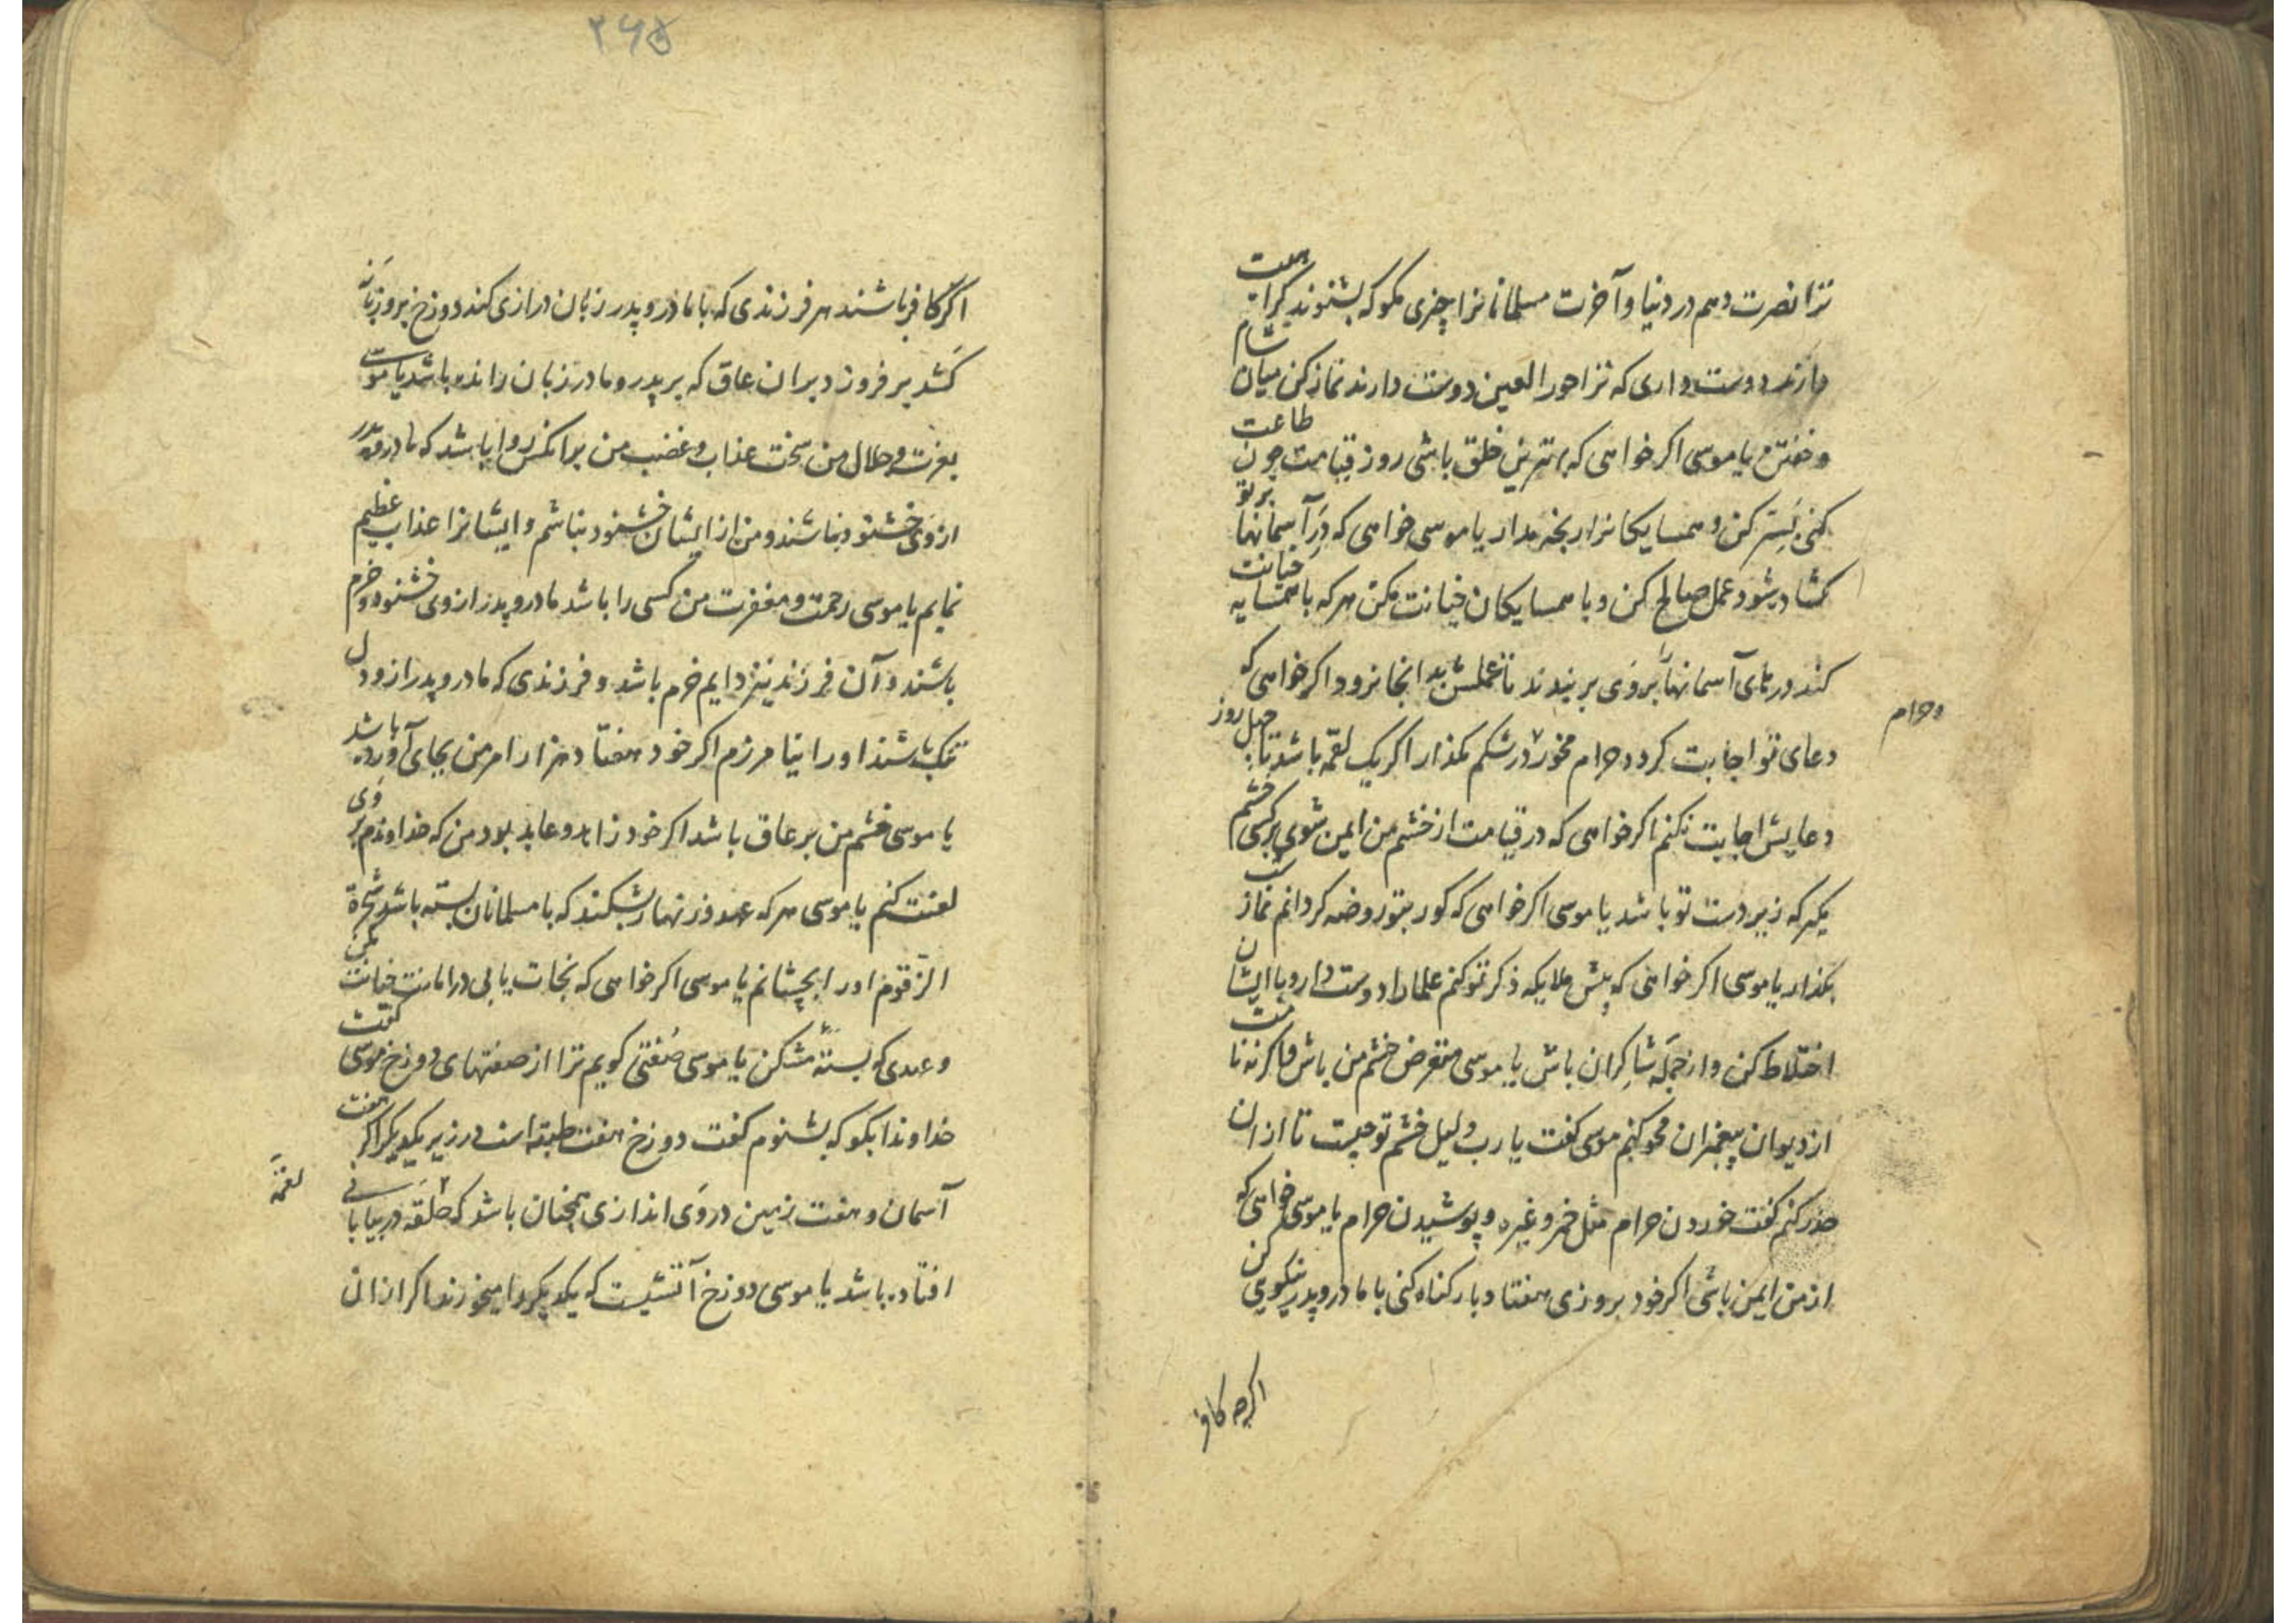 ترا نصرت دهم در دنیا و آخرت مسلمانانرا چیزی مکو که بشنوند کراهیت
دارند دوست داری که ترا حور العین دوست دارند نماز کن میان شام
و خفتن یا موسی اکر خواهی که بهترین خلق باشی روز قیامت چون طاعت
کنی بستر کن و همسایکانرا رنجه مدار یا موسی خواهی که در آسمانها بر تو
کشاد شود عمل صالح کن و با همسایکان خیانت مکن هر که با همسایه خیانت
کند درهای آسمانها را بروی بربندند تا عملش بدانجا نرود اکر خواهی که
دعای تو اجابت کردد حرام مخور و در شکم مکذار اکر یک لقمه باشد تا چهل روز
و حرام
دعایش اجابت نکنم اکر خواهی که در قیامت از خشم من ایمن شوی بر کسی خشم
مکیر که زیر دست تو باشد یا موسی اکر خواهی که کور بتو روضه کردانم نماز شب
بکذار یا موسی اکر خواهی که پیش ملایکه ذکر تو کنم علما را دوست دار و با ایشان
اختلاط کن و از جمله شاکران باش یا موسی متعرض خشم من باش و اکرنه نامت
از دیوان پیغمبران محو کنم موسی کفت یا رب دلیل خشم تو چیست تا از ان
حذر کنم کفت خوردن حرام مثل خمر و غیره و پوشیدن حرام یا موسی خواهی که
از من ایمن باشی اکر خود بروزی هفتاد بار کناه کنی با مادر و پدر نیکویی کن
اکرچه کافر
۲۶۵
اکر کافر باشند هر فرزندی که با مادر و پدر زبان درازی کند دوزخ بروزبانه
کشد بر فروزد بران عاق که بر پدر و مادر زبان رانده باشد یا موسی
بعزت و جلال من سخت عذاب و غضب من بر انکس روا باشد که مادر و پدر
از وی خشنود نباشند و من از ایشان خشنود نباشم و ایشانرا عذاب عظیم
نمایم یا موسی رحمت و مغفرت من کسی را باشد مادر و پدر از وی خشنود و خرم
باشند و آن فرزند نیز دایم خرم باشد و فرزندی که مادر و پدر ازو دل
تنک باشند او را نیامرزم اکر خود هفتاد هزار امر من بجای آورده باشد
یا موسی خشم من بر عاق باشد اکر خود زاهد و عابد بود من که خداوندم بر وی
لعنت کنم یا موسی هر که عهد و زنهار بشکند که با مسلمانان بسته باشد شجرة
الزقوم او را بچشانم یا موسی اکر خواهی که نجات یابی در امانت خیانت مکن
و عهدی که بسته مشکن یا موسی صفتی کویم ترا از صفتهای دوزخ موسی کفت
خداوندا بکو که بشنوم کفت دوزخ هفت طبقه است در زیر یکدیکر اکر هفت
آسمان و هفت زمین دروی اندازی همچنان باشد که حلقه در بیابانی
لقمه
افتاده باشد یا موسی دوزخ آتشیست که یکدیکر را میخورند اکر از ان